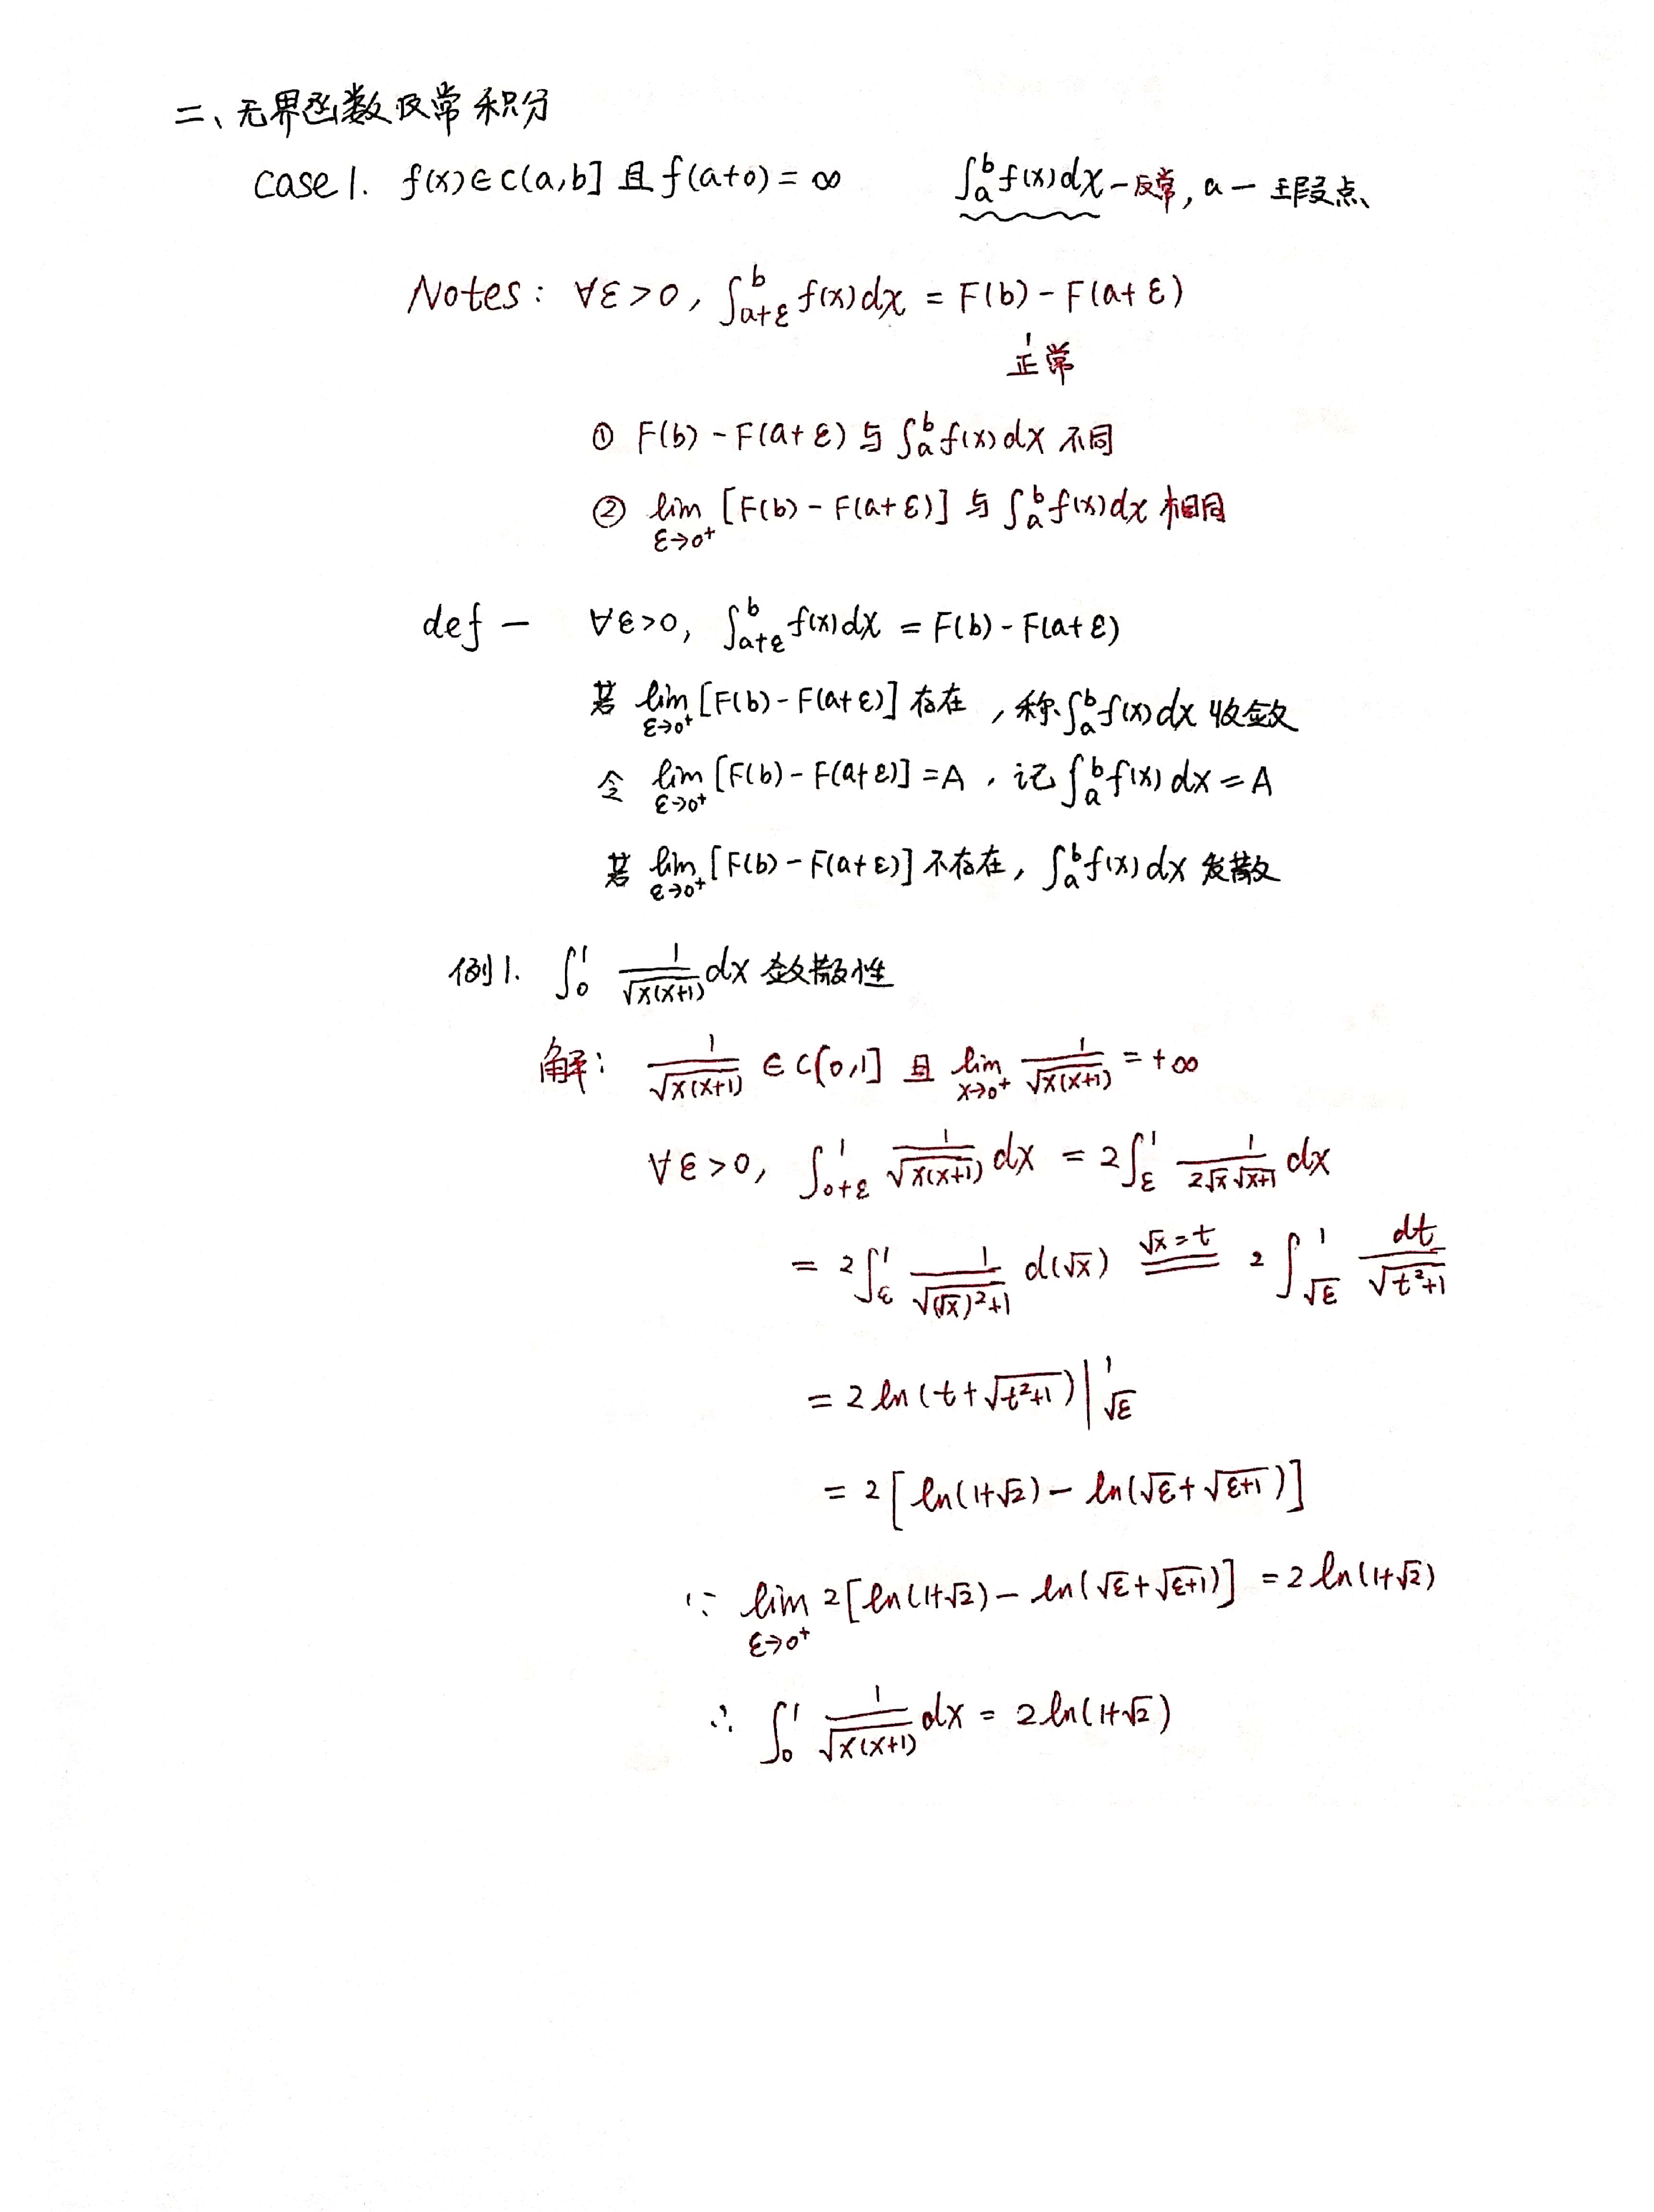 二、无界函数反常积分
case 1. f(x)∈C(a,b] 且 f(a+0)=∞ ∫_a^b f(x)dx — 反常, a — 瑕点
Notes: ∀ε>0, ∫_{a+ε}^b f(x)dx = F(b)-F(a+ε)
正常
① F(b)-F(a+ε) 与 ∫_a^b f(x)dx 不同
② lim_{ε→0⁺} [F(b)-F(a+ε)] 与 ∫_a^b f(x)dx 相同
def — ∀ε>0, ∫_{a+ε}^b f(x)dx = F(b)-F(a+ε)
若 lim_{ε→0⁺} [F(b)-F(a+ε)] 存在, 称 ∫_a^b f(x)dx 收敛
令 lim_{ε→0⁺} [F(b)-F(a+ε)] = A, 记 ∫_a^b f(x)dx = A
若 lim_{ε→0⁺} [F(b)-F(a+ε)] 不存在, ∫_a^b f(x)dx 发散
例1. ∫_0^1 1/√(x(x+1)) dx 敛散性
解: 1/√(x(x+1)) ∈ C(0,1] 且 lim_{x→0⁺} 1/√(x(x+1)) = +∞
∀ε>0, ∫_{0+ε}^1 1/√(x(x+1)) dx = 2∫_ε^1 1/(2√x √(x+1)) dx
= 2∫_ε^1 1/√((√x)²+1) d(√x) ==(√x=t)== 2∫_{√ε}^1 dt/√(t²+1)
= 2 ln(t+√(t²+1)) |_{√ε}^1
= 2[ln(1+√2) - ln(√ε+√(ε+1))]
∵ lim_{ε→0⁺} 2[ln(1+√2) - ln(√ε+√(ε+1))] = 2 ln(1+√2)
∴ ∫_0^1 1/√(x(x+1)) dx = 2 ln(1+√2)